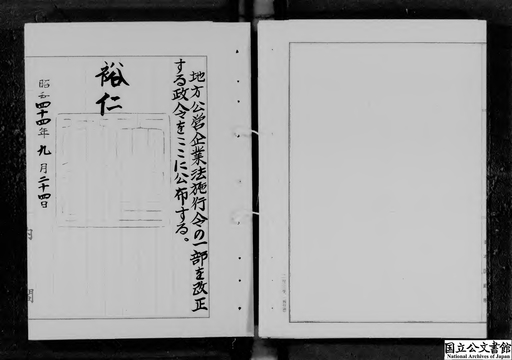 地方公営企業法施行令の一部を改正
する政令をここに公布する。
裕仁
昭和四十四年九月二十四日
国立公文書館
National Archives of Japan